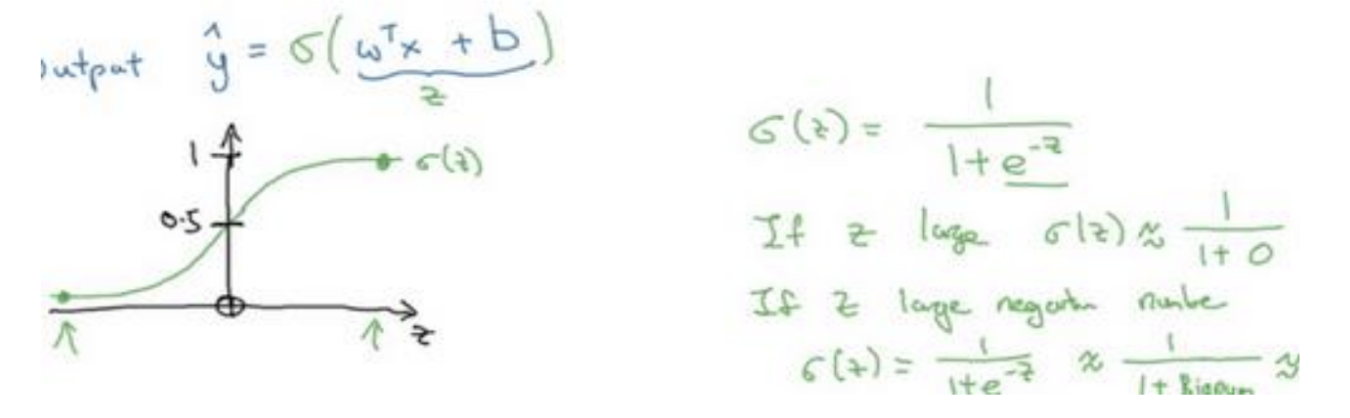 output ŷ = σ(wᵀx + b)
z
1
σ(z)
0.5
z
σ(z) = 1 / (1 + e^-z)
If z large σ(z) ≈ 1 / (1 + 0)
If z large negative number
σ(z) = 1 / (1 + e^-z) ≈ 1 / (1 + Bignum) ≈